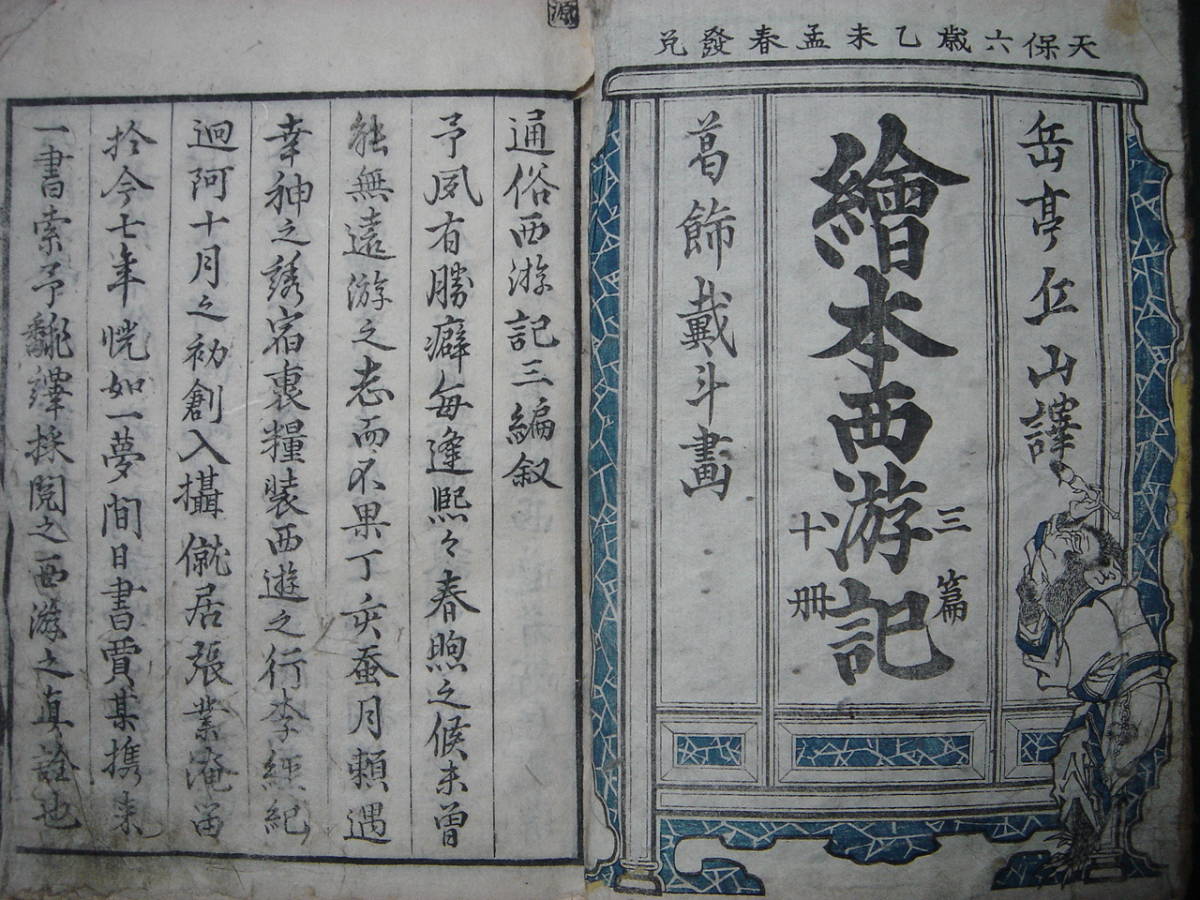 天保六歳乙未孟春發兌
岳亭丘山譯
繪本西游記
三篇
十冊
葛飾戴斗畫
通俗西游記三編叙
予夙有勝癖每逢熙々春煦之候未曾
無遠游之志而不果丁亥蚕月頼遇
幸神之誘宿裹糧装西遊之行李經紀
迴阿十月之初創入攝僦居張業淹留
於今七年恍如一夢間日書賈某携来
一書索予翻繹採閲之西游之真詮也